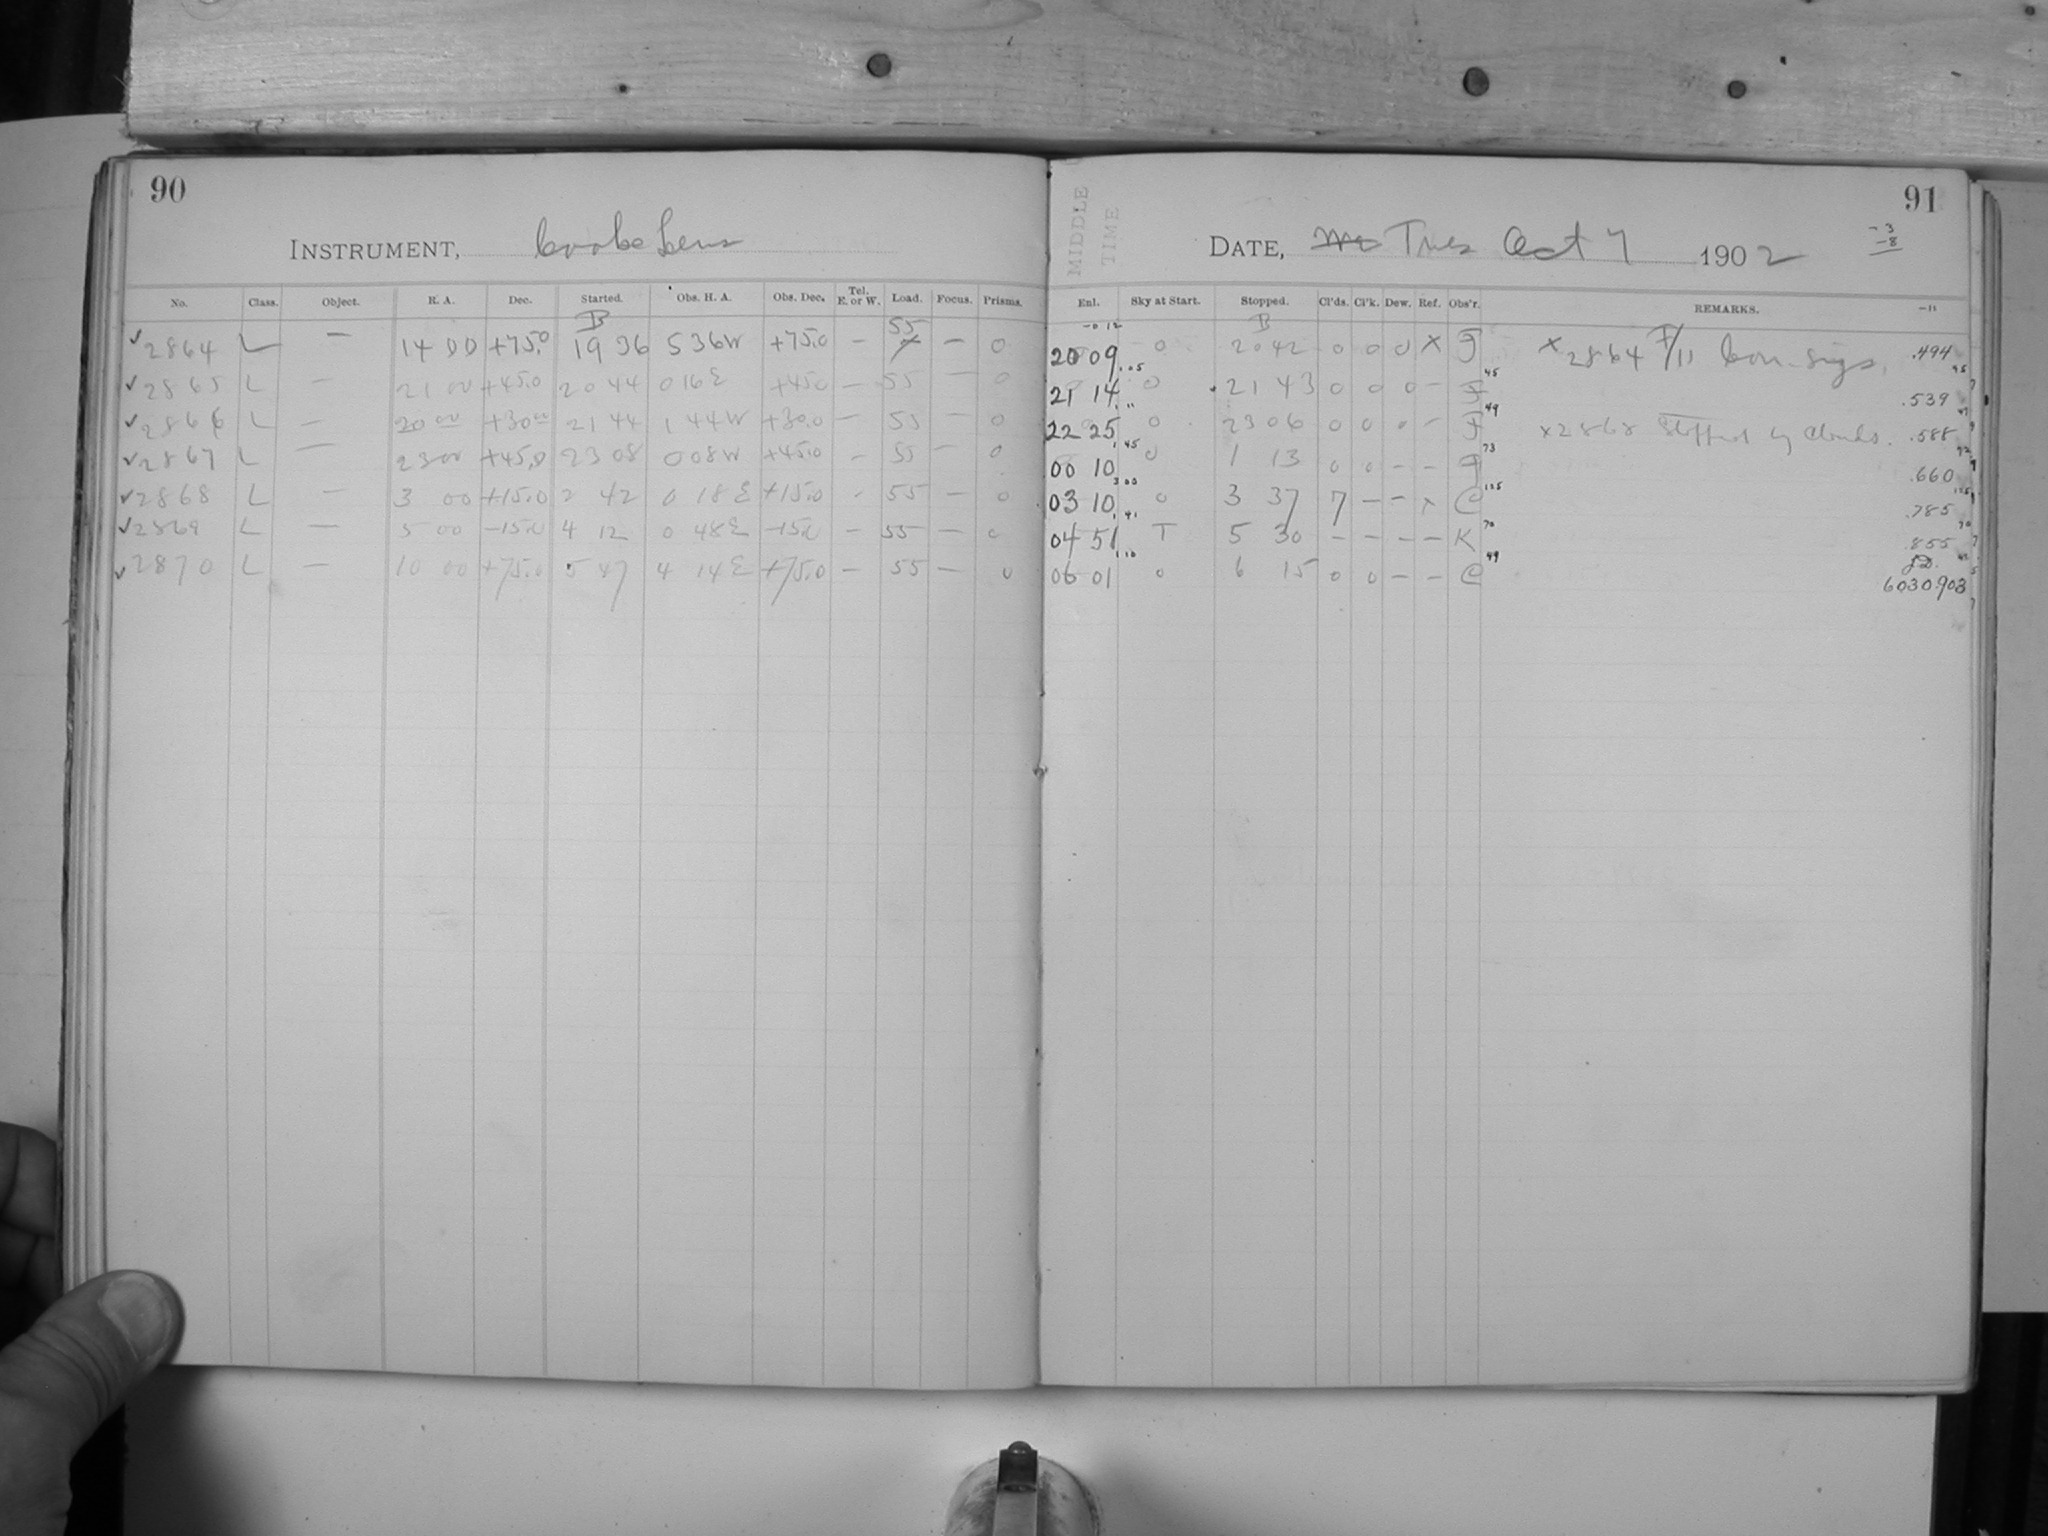 90
INSTRUMENT, Cooke Lens
No. Class. Object. R. A. Dec. Started. Obs. H. A. Obs. Dec. Tel. E. or W. Load. Focus. Prisms.
B 55
✓2864 L — 14 00 +75.0 19 36 5 36W +75.0 — — 0
✓2865 L — 21 00 +45.0 20 44 0 16E +45.0 — 55 — 0
✓2866 L — 20 00 +30.00 21 44 1 44W +30.0 — 55 — 0
✓2867 L — 23 00 +45.0 23 08 0 08W +45.0 — 55 — 0
✓2868 L — 3 00 +15.0 2 42 0 18E +15.0 - 55 — 0
✓2869 L — 5 00 -15.0 4 12 0 48E -15.0 — 55 — 0
✓2870 L — 10 00 +75.0 5 47 4 14E +75.0 — 55 — 0
MIDDLE
TIME
91
DATE, Tues Oct 7 1902
-3
-8
Enl. Sky at Start. Stopped. Cl'ds. Cl'k. Dew. Ref. Obs'r. REMARKS. -11
-0 12 B
20 09 0 20 42 0 0 0 X F X 2864 F/11 Con. Sigs. .494
.05 45 45
21 14 0 21 43 0 0 0 — F .539
.11 49
22 25 0 23 06 0 0 - — F x2868 Stopped by clouds. .588
.45 73
00 10 0 1 13 0 0 — — F .660
3 00 125 125
03 10 0 3 37 7 — — x C .785
.41 70 70
04 51 T 5 30 — — — — K .855
1 10 49 J.D.
06 01 0 6 15 0 0 — — C 6030.903